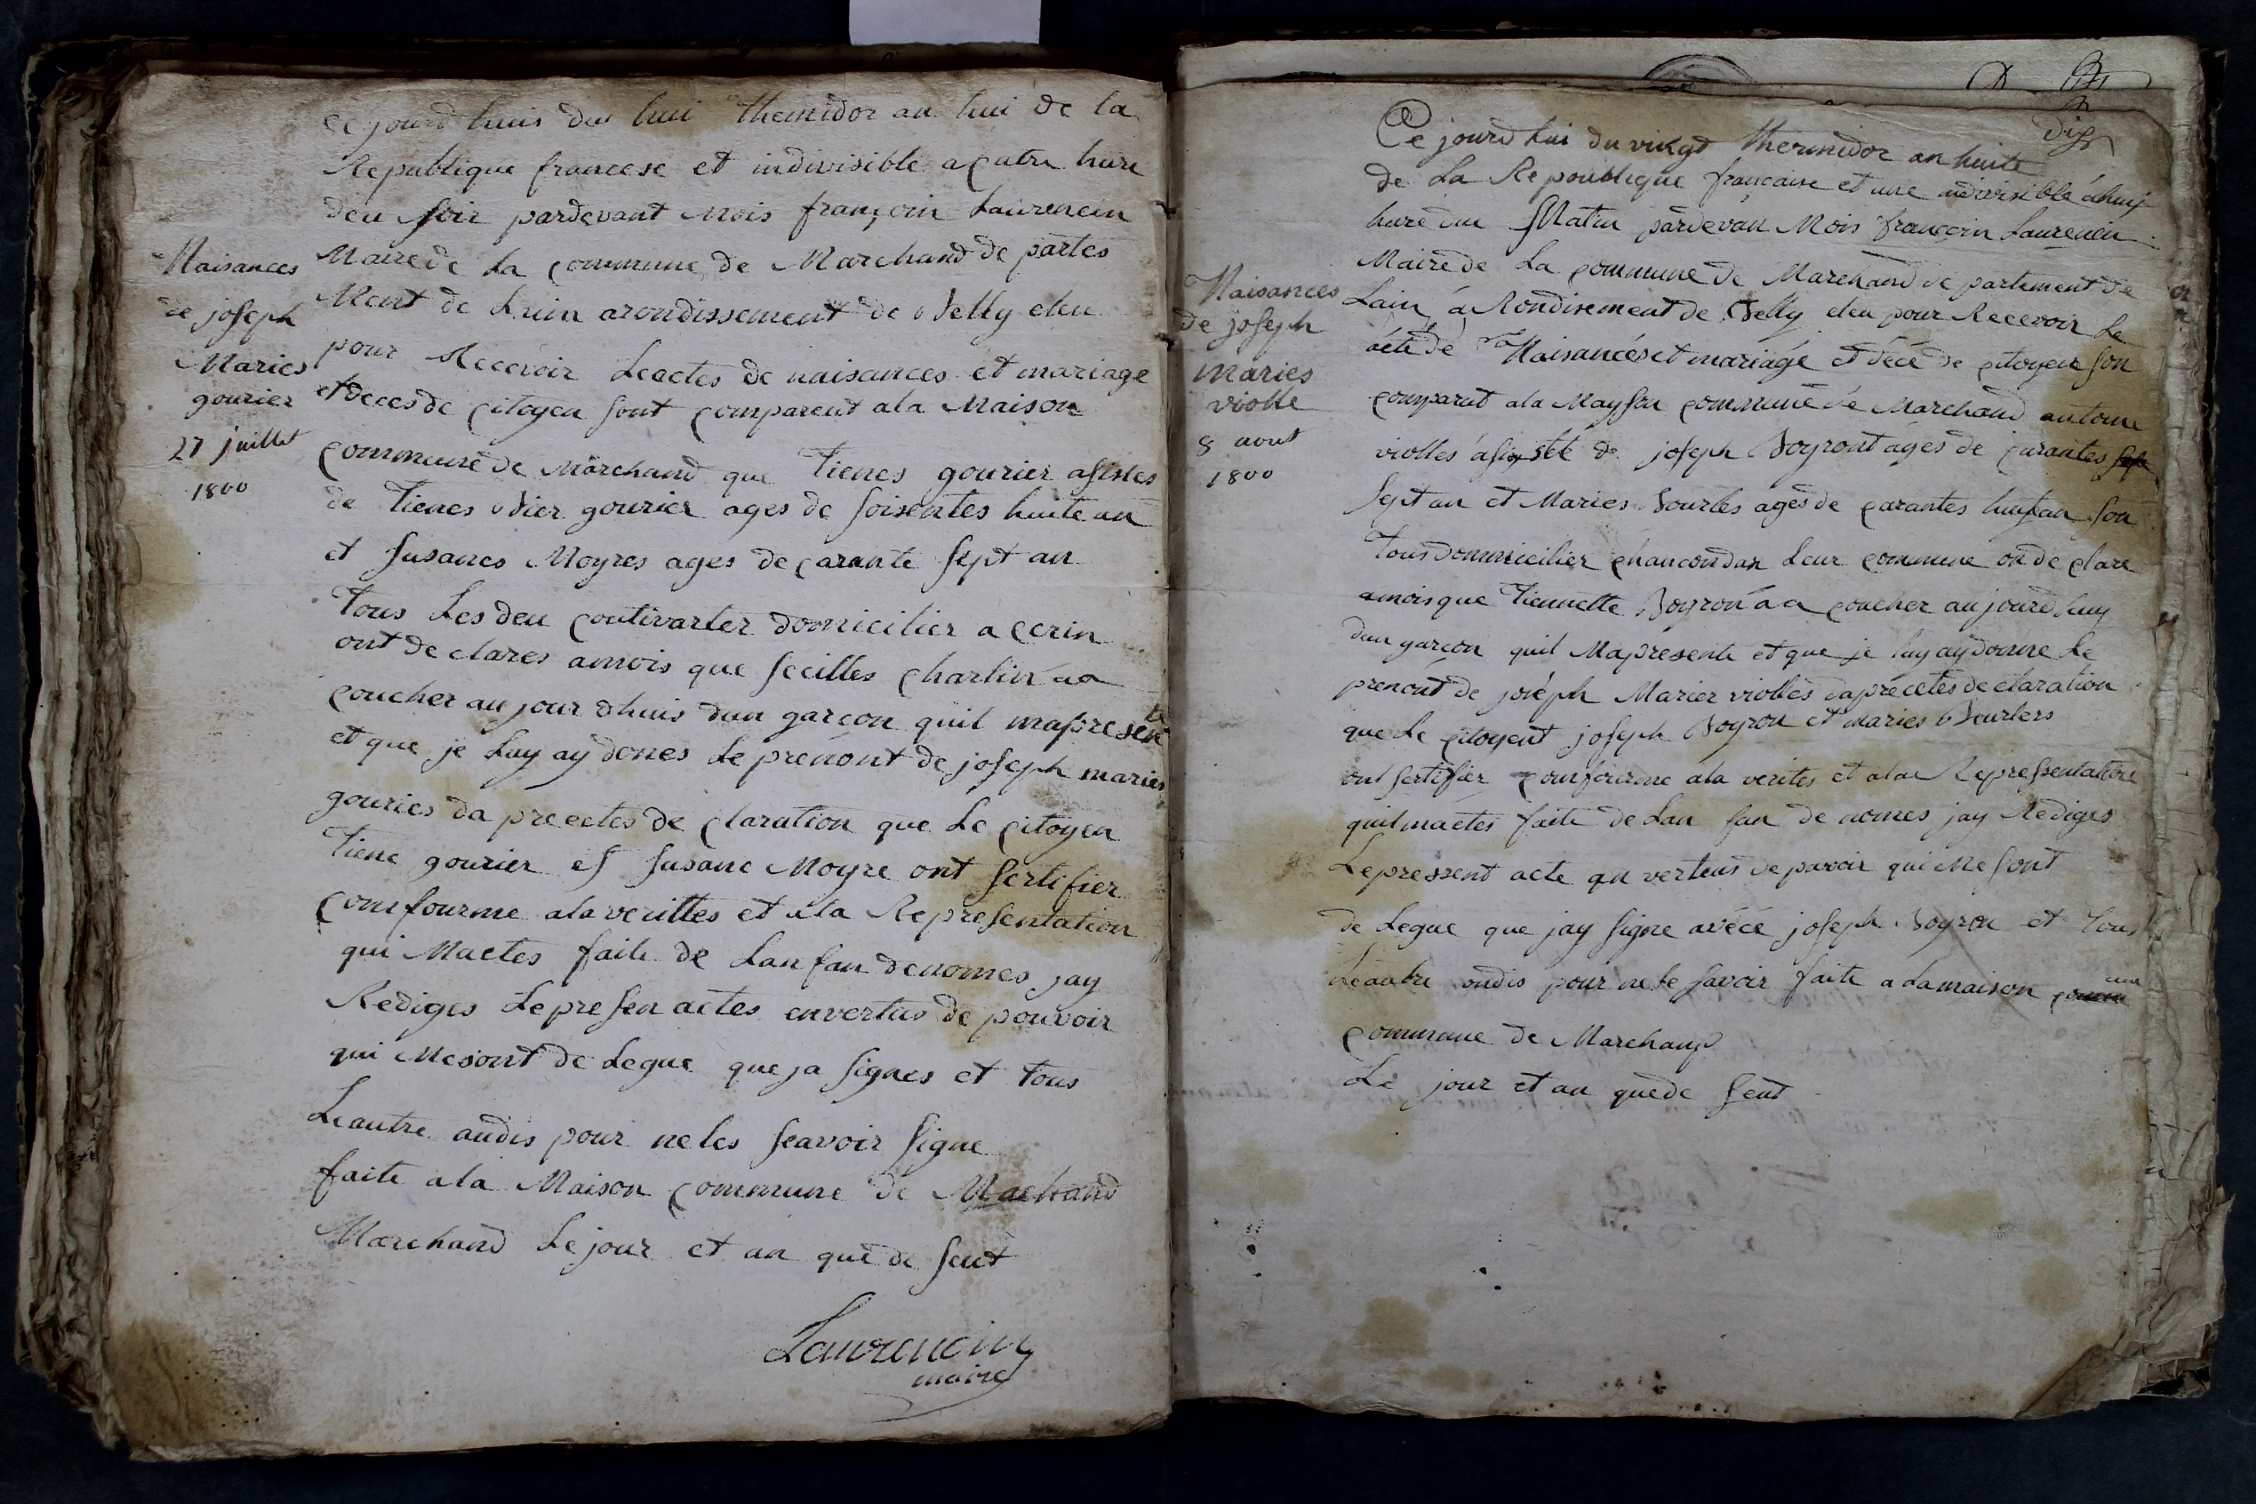 Ce jourd huis du hui themidor an hui de la
Republique francese et indivisible a catre hure
deu soir pardevant mois françoin Laurencin
Maire de La commune de Marchand de partes
Ment de Lain arondissement de Belly eleu
pour Recevoir Leactes de naisances et mariage
et deces de citoyen sont comparent ala Maison
commune de Marchand que tienes gourier asistes
de tienes Bier gourier ages de soisentes huite an
et susanes Moyres ages de carante sept an
Tous Les deu coutivarter domicilier a Cerin
ont de clares amois que secilles charlin àa
coucher au jour dhuis dun garcon quil mapresente
et que je Luy ay dones Le prenont de joseph maries
gouries da preectes de claration que Le citoyen
tiene gourier et susane Moyre ont sertifier
comfourme ala verittes et ala Representation
qui Mactes faite de Lanfan denomes jay
Rediges Lepresen actes envertus de pouvoir
qui Mesont de Legue que ja signes et tous
Leautre andis pour neles seavoir signe
faite ala Maison commune de Machand
Marchand Lejour et an que de seut
Laurencin
maire
Naisances
de joseph
Maries
gourier
27 juillet
1800
dix
Ce jourd hui du vingt thermidor an huite
de La Republique française et une indivisible à huy
hure du Matin pardevan Mois françoin Laurencin
Maire de La commune de Marchand de partement de
Lain à Rondisement de Belly eleu pour Recevoir Le
acte de Naisances et mariage et déce de citoyen son
comparut ala Mayson commune de Marchand antoine
violles àsisté de joseph Boyront àges de carantes
sept an et Maries Bourles ages de carantes huit an son
tous dommicilier chancondan Leur commune on de clare
amois que tiennette Boyron àa coucher aujourdhuy
dun garcon quil Mapresente et que je luy ay donne Le
prenont de joseph Marier violles daprecetes declaration
que Le citoyent joseph Boyron et maries Beurlers
ont sertifier comfourme ala verites et ala Repressentation
quilmactes faite de Lan fan de nomes jay Rediges
Lepressent acte an vertus de pavoir qui Me sont
de Legue que jay signe avéce joseph Boyron et tous
Leautre ondis pour ne le savoir faite a Lamaison
commune de Marchand
Le jour et an que de seut
Naisances
de joseph
maries
violle
8 aout
1800